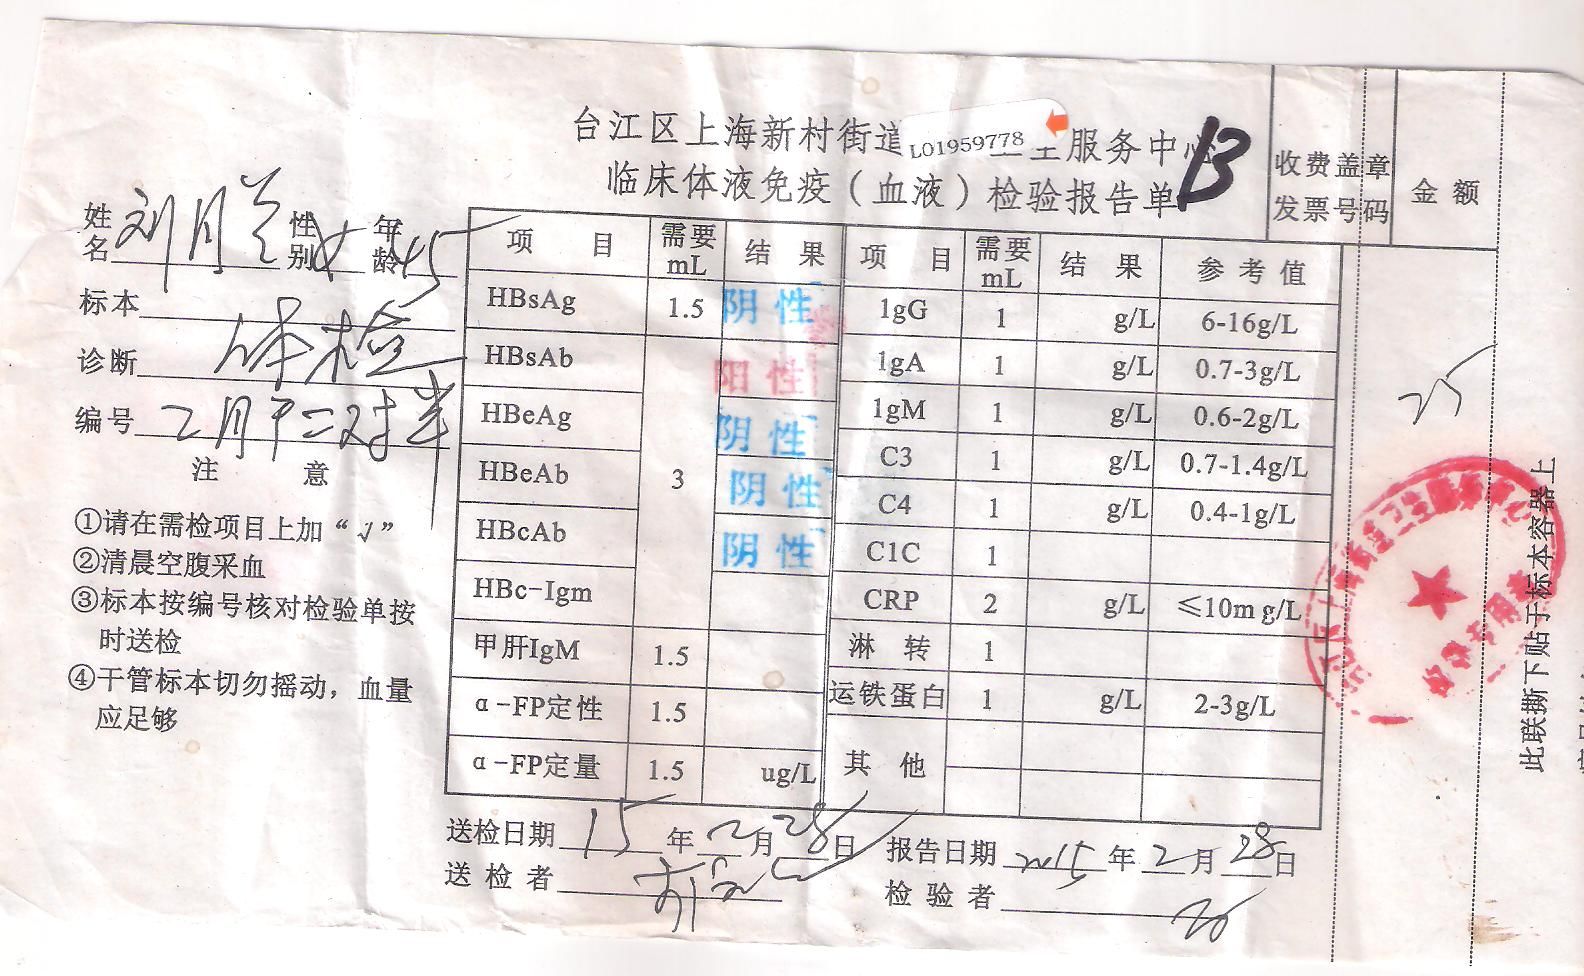 台江区上海新村街道 卫生服务中心
L01959778
临床体液免疫（血液）检验报告单
B
收费盖章
发票号码
金额
姓名 刘月兰 性别 女 年龄 45
标本
诊断 体检
编号 乙肝二对半
注 意
①请在需检项目上加“√”
②清晨空腹采血
③标本按编号核对检验单按
时送检
④干管标本切勿摇动，血量
应足够
项 目 需要mL 结 果 项 目 需要mL 结 果 参考值
HBsAg 1.5 阴性 1gG 1 g/L 6-16g/L
HBsAb 阳性 1gA 1 g/L 0.7-3g/L
HBeAg 阴性 1gM 1 g/L 0.6-2g/L
HBeAb 3 阴性 C3 1 g/L 0.7-1.4g/L
HBcAb 阴性 C4 1 g/L 0.4-1g/L
C1C 1
HBc-Igm CRP 2 g/L ≤10mg/L
甲肝IgM 1.5 淋 转 1
α-FP定性 1.5 运铁蛋白 1 g/L 2-3g/L
α-FP定量 1.5 ug/L 其 他
25
送检日期 15 年 2 月 28 日 报告日期 2015 年 2 月 28 日
送检者
检验者
此联撕下贴于标本容器上